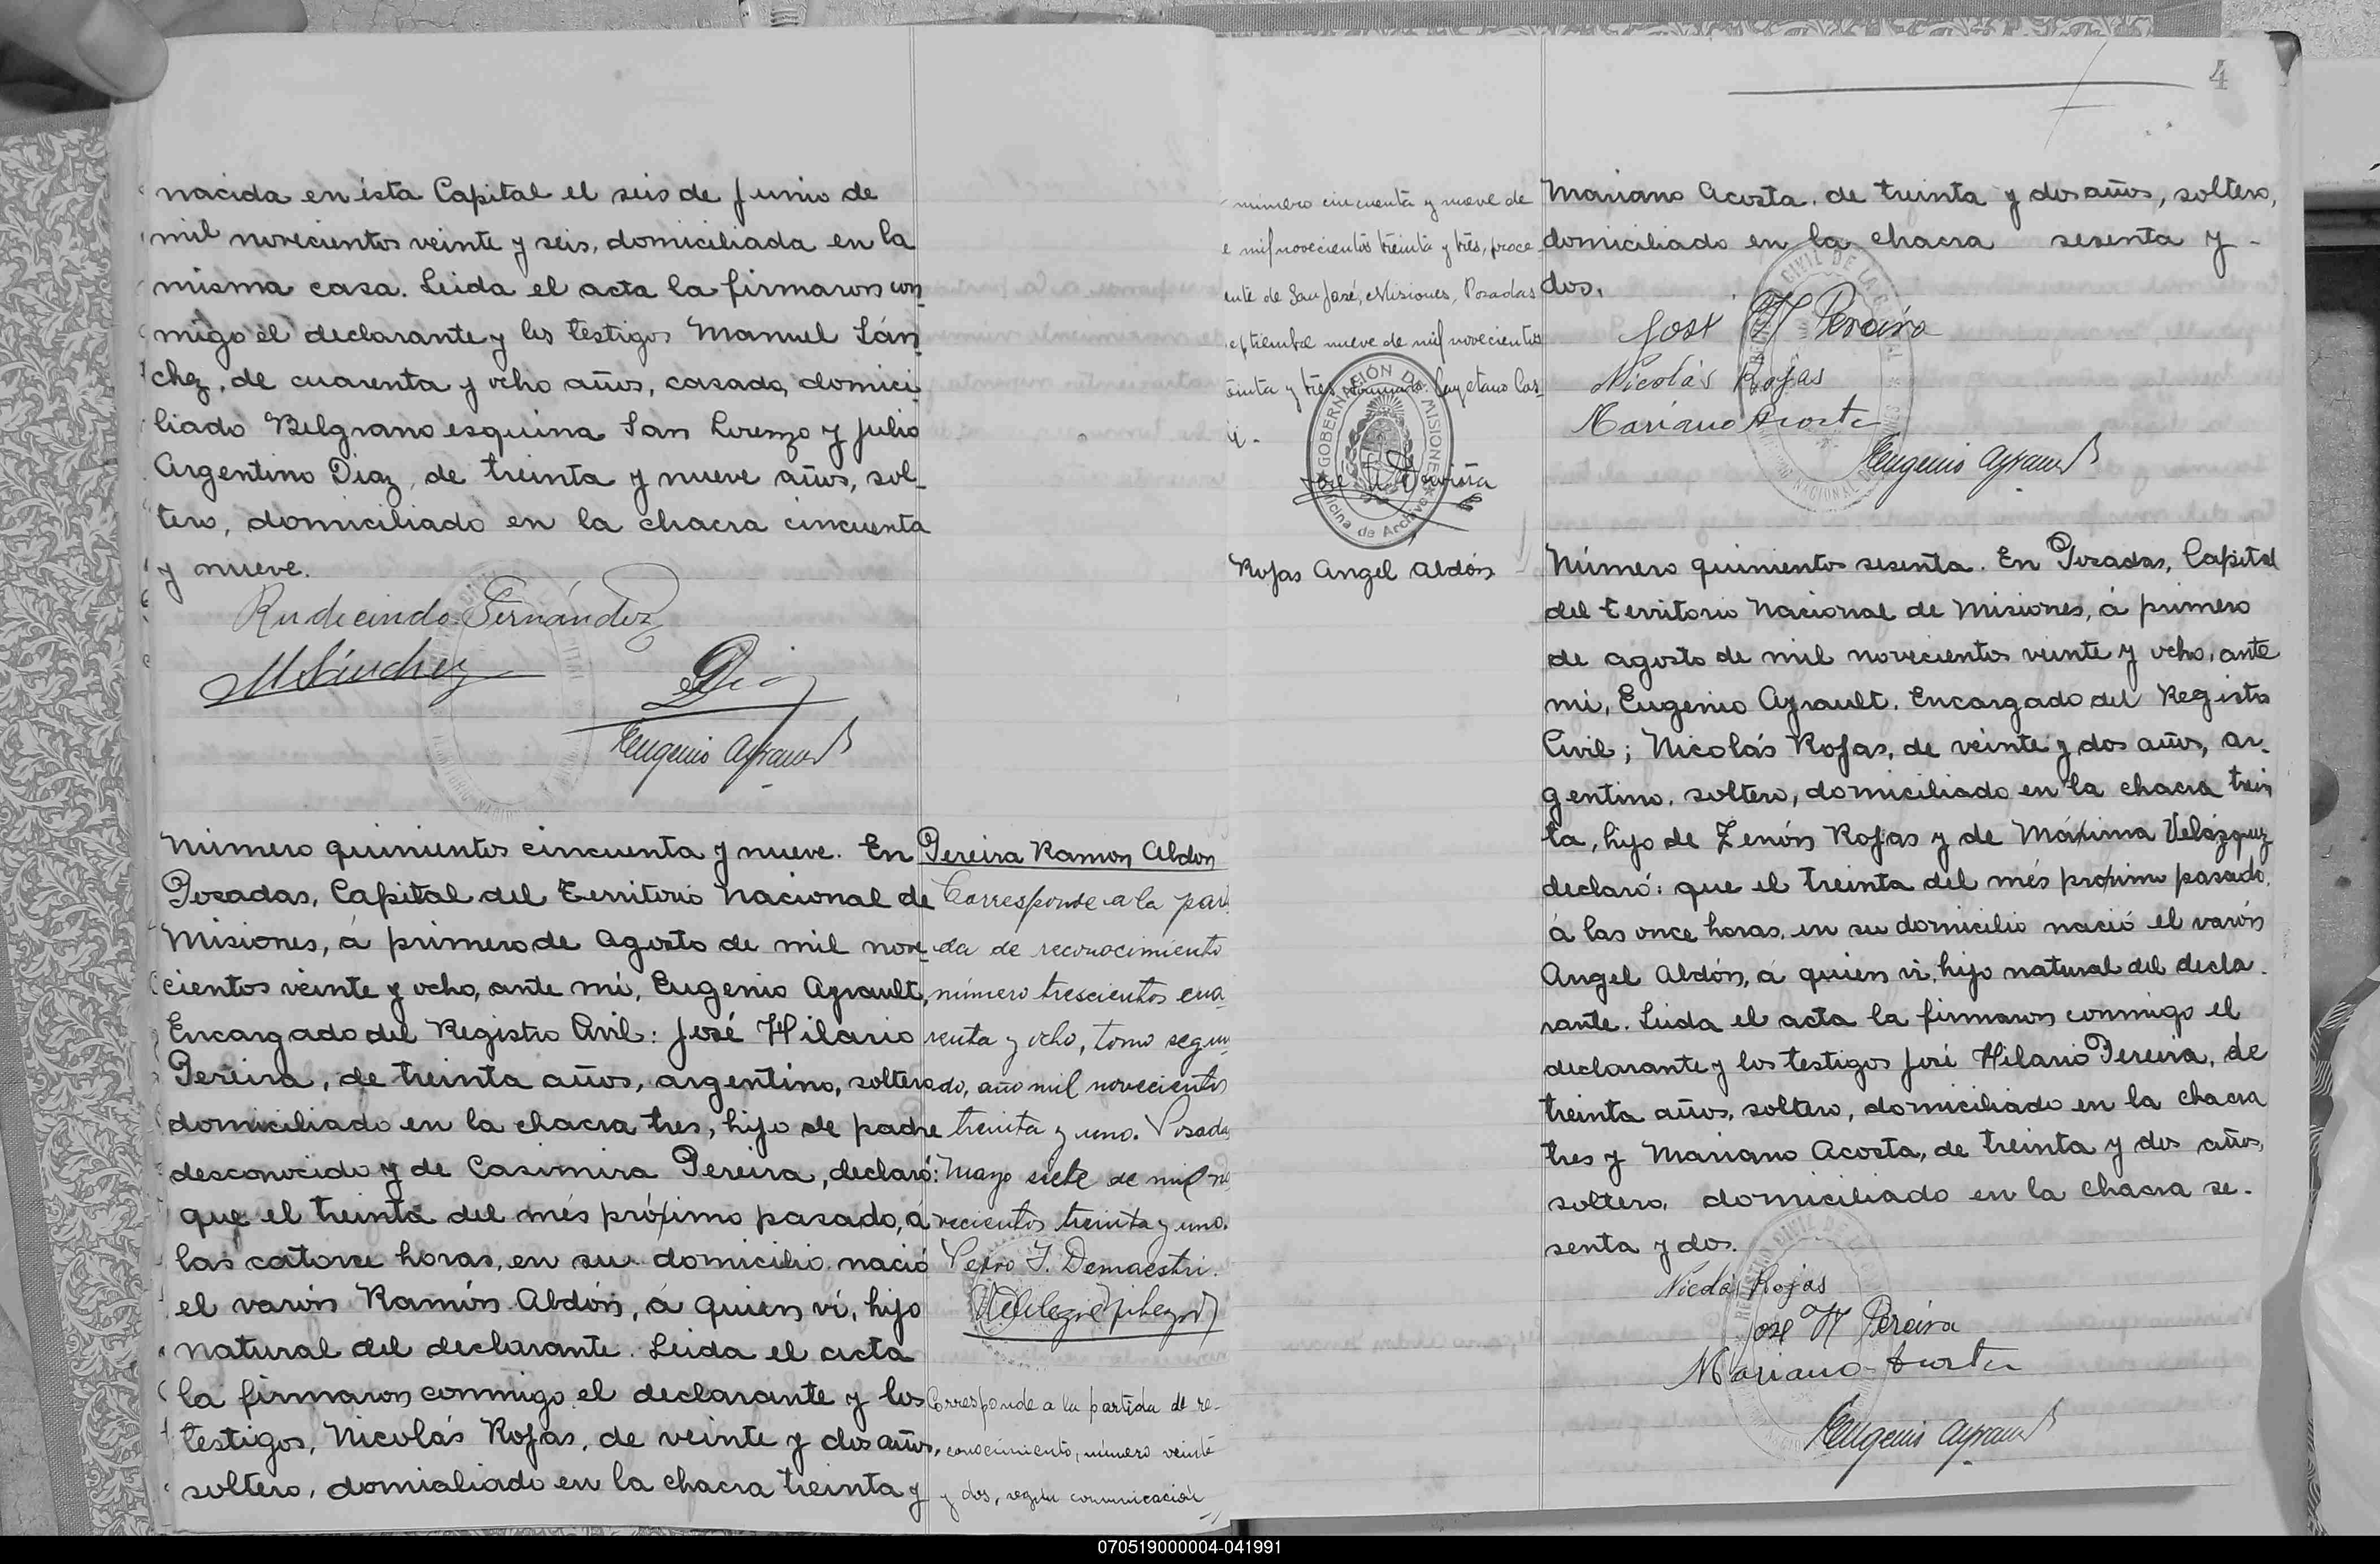 nacida en ésta Capital el seis de Junio de
mil novecientos veinte y seis, domiciliada en la
misma casa. Leida el acta la firmaron con_
migo el declarante y los testigos Manuel Sán_
chez, de cuarenta y ocho años, casado, domici_
liado Belgrano esquina San Lorenzo y Julio
Argentino Diaz, de treinta y nueve años, sol_
tero, domiciliado en la chacra cincuenta
y nueve.
Rudecindo Fernández
M Sánchez
Diaz
Eugenio Ayrault
Número quinientos cincuenta y nueve. En
Posadas, Capital del Territorio Nacional de
Misiones, á primero de Agosto de mil nove_
cientos veinte y ocho, ante mí, Eugenio Ayrault,
Encargado del Registro Civil: José Hilario
Pereira, de treinta años, argentino, soltero
domiciliado en la chacra tres, hijo de padre
desconocido y de Casimira Pereira, declaró:
que el treinta del més próximo pasado, a
las catorce horas, en su domicilio nació
el varón Ramón Abdón, á quien ví, hijo
natural del declarante. Leida el acta
la firmaron conmigo el declarante y los
testigos, Nicolás Rojas, de veinte y dos años,
soltero, domiciliado en la chacra treinta y
Pereira Ramon Abdon
Corresponde a la parti
da de reconocimiento
número trescientos cua_
renta y ocho, tomo segun_
do, año mil novecientos
treinta y uno. Posadas
Mayo siete de mil no
vecientos treinta y uno.
Pedro J. Demaestri.
Corresponde a la partida de re-
conocimiento, número veinte
y dos, según comunicación
número cincuenta y nueve de
e mil novecientos treinta y tres, proce
ente de San José, Misiones, Posadas
eptiembre nueve de mil novecientos
einta y tres. Cayetano Cas_
GOBERNACIÓN DE MISIONES
Oficina de Archivo
Rojas Angel Abdón
4
Mariano Acosta, de treinta y dos años, soltero,
domiciliado en la chacra sesenta y -
dos.
José H Pereira
Nicolás Rojas
Mariano Acosta
Eugenio Ayrault
Número quinientos sesenta. En Posadas, Capital
del Territorio Nacional de Misiones, á primero
de agosto de mil novecientos veinte y ocho, ante
mi, Eugenio Ayrault. Encargado del Registro
Civil; Nicolás Rojas, de veinte y dos años, ar_
gentino, soltero, domiciliado en la chacra trein
ta, hijo de Zenón Rojas y de Máxima Velázquez
declaró: que el treinta del més proximo pasado,
á las once horas, en su domicilio nació el varón
Angel Abdón, á quien vi, hijo natural del decla_
rante. Leida el acta la firmaron conmigo el
declarante y los testigos José Hilario Pereira, de
treinta años, soltero, domiciliado en la chacra
tres y Mariano Acosta, de treinta y dos años,
soltero, domiciliado en la chacra se_
senta y dos.
Nicolás Rojas
José H Pereira
Mariano Acosta
Eugenio Ayrault
070519000004-041991